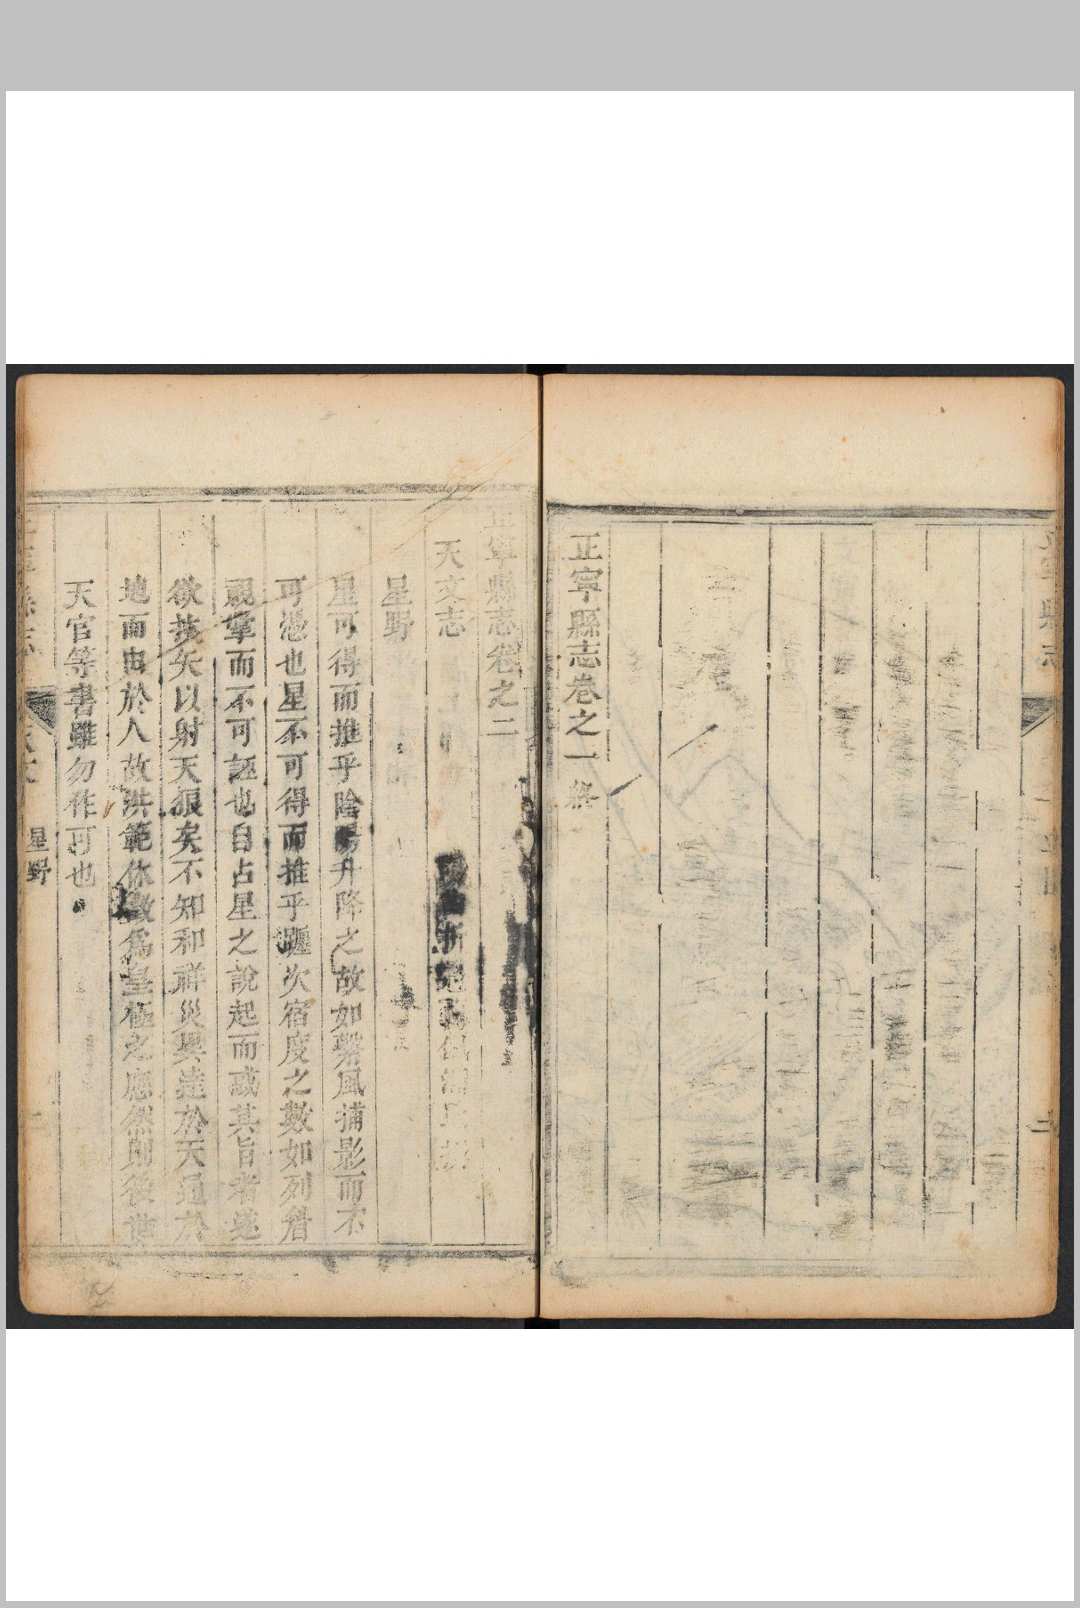 正寧縣志
正寧縣志卷之一終
正寧縣志卷之二
天文志
星野
星可得而推乎陰陽升降之故如繫風捕影而不
可憑也星不可得而推乎躔次宿度之數如列眉
視掌而不可誣也自占星之說起而惑其旨者遂
欲挾矢以射天狼矣不知和祥災異達於天通於
地而由於人故洪範休徵為皇極之應然則後世
天官等書雖勿作可也
星野